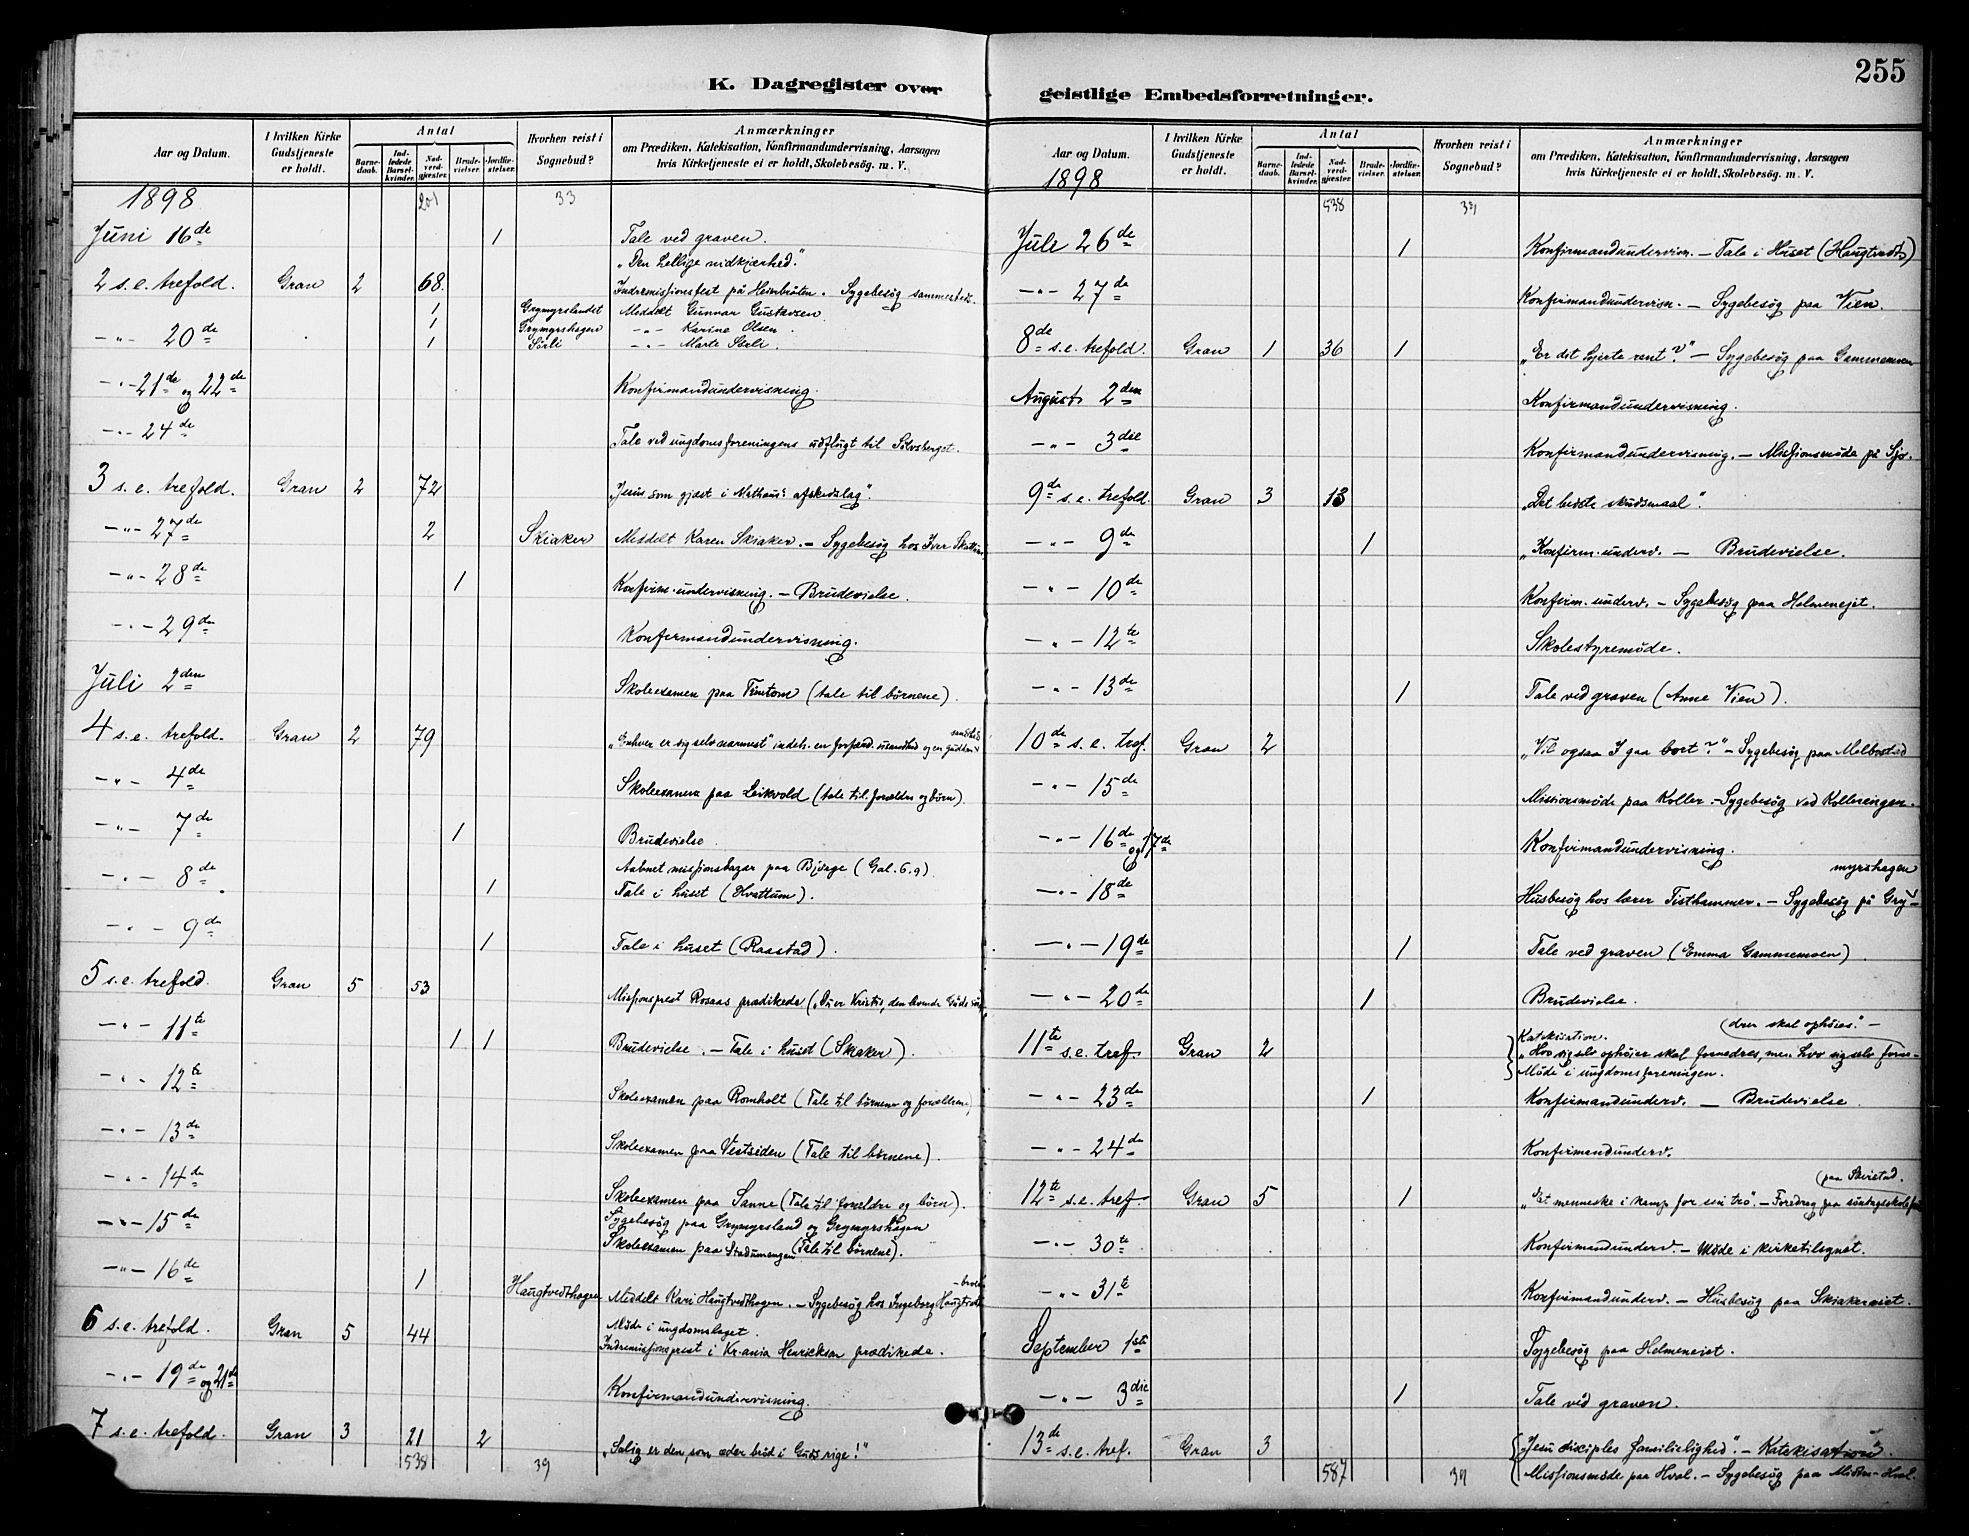 255
K. Dagregister over
geistlige Embedsforretninger.
Aar og Datum.
I hvilken Kirke Gudstjeneste er holdt.
Antal
Barnedaab.
Indledede Barselkvinder.
Nadverdgjæster.
Brudevielser.
Jordfæstelser.
Hvorhen reist i Sognebud?
Anmærkninger
om Prædiken, Katekisation, Konfirmandundervisning, Aarsagen
hvis Kirketjeneste ei er holdt, Skolebesög. m. V.
1898 201 33
Juni 16de 1 Tale ved graven.
"Den hellige nidkjærhed."
2 s.e. trefold. Gran 2 68 Indremissionsfest på Heinbråten. Sygebesøg sammesteds.
1 Grymyrslandet Meddelt Gunnar Gustavsen
-"- 20de 1 Grymyrshagen -"- Karine Olsen.
1 Sørli -"- Marte Sørli.
-"- 21de og 22de Konfirmandundervisning.
-"- 24de Tale ved ungdomsforeningens udflugt til Sølvsberget.
3 s.e. trefold. Gran 2 72 "Jesus som gjæst i Mathæus' afskedslag".
-"- 27de 2 Skiaker Meddelt Karen Skiaker. - Sygebesøg hos Iver
-"- 28de 1 Konfirm.undervisning. - Brudevielse.
-"- 29de Konfirmandundervisning.
Juli 2den Skoleexamen paa Tømtom (tale til børnene).
4 s.e. trefold. Gran 2 79 "Enhver er sig selv nærmest" indeh. en
-"- 4de Skoleexamen paa Leikvold (tale til forældre og børn).
-"- 7de 1 Brudevielse.
Aabnet missionsbazar paa Bjørge (Gal. 6.9)
-"- 8de 1 Tale i huset (Hvattum).
-"- 9de 1 Tale i huset (Raastad).
5 s.e. trefold. Gran 5 53 Missionsprest Rosaas prædikede ("Du er Kristus, den levende Guds søn".
-"- 11te 1 1 Brudevielse. - Tale i huset (Skiaker).
-"- 12te Skoleexamen paa Romholt (Tale til børnene og forældrene)
-"- 13de Skoleexamen paa Vestsiden (Tale til børnene).
-"- 14de Skoleexamen paa Sanne (Tale til forældre og børn).
-"- 15de Sygebesøg paa Grymyrsland og Grymyrshagen
Skoleexamen paa Stadumengen (Tale til børnene).
-"- 16de 1 Haugtvedthagen Meddelt Kari Haugtvedthagen. - Sygebesøg hos Ingeborg
6 s.e. trefold. Gran 5 44 Møde i ungdomslaget.
Indremissionsprest i Kr.ania Henriksen prædikede.
-"- 19de og 21de Konfirmandundervisning.
7 s.e. trefold. Gran 3 21 2 "Salig er den, som æder brød i Guds rige!"
538 39
Aar og Datum.
I hvilken Kirke Gudstjeneste er holdt.
Antal
Barnedaab.
Indledede Barselkvinder.
Nadverdgjæster.
Brudevielser.
Jordfæstelser.
Hvorhen reist i Sognebud?
Anmærkninger
om Prædiken, Katekisation, Konfirmandundervisning, Aarsagen
hvis Kirketjeneste ei er holdt, Skolebesög. m. V.
1898 538 39
Juli 26de 1 Konfirmandundervisn. - Tale i Huset (Haugtvedt)
-"- 27de Konfirmandundervisn. - Sygebesøg paa Vien.
8de s.e. trefold. Gran 1 36 1 "Er dit hjerte rent?" - Sygebesøg paa Gammemoen
August 2den Konfirmandundervisning.
-"- 3die Konfirmandundervisning. - Missionsmøde på Sjo.
9de s.e. trefold. Gran 3 13 "Det bedste skudsmaal".
-"- 9de 1 Konfirm.underv. - Brudevielse.
-"- 10de Konfirm.underv. - Sygebesøg paa Helmeneiet.
-"- 12te Skolestyremøde.
-"- 13de 1 Tale ved graven (Anne Vien).
10de s.e. tref. Gran 2 "Vil ogsaa I gaa bort?" - Sygebesøg paa Melbostad
-"- 15de Missionsmøde paa Koller. - Sygebesøg ved Kollerengen.
-"- 16de og 17de Konfirmandundervisning.
myrshagen
-"- 18de Husbesøg hos lærer Tisthammer. - Sygebesøg på Gry-
-"- 19de 1 Tale ved graven (Emma Gammemoen)
-"- 20de 1 Brudevielse.
Katekisation. (dres skal ophøies." -
11te s.e. tref. Gran 2 "Hvo sig selv ophøier skal fornedres, men hvo sig selv forne-
Møde i ungdomsforeningen.
-"- 23de 1 Konfirmandunderv. - Brudevielse
-"- 24de Konfirmandunderv.
12te s.e. tref. Gran 5 1 "Et menneske i kamp for sin tro". - Foredrag paa
-"- 30te Konfirmandunderv. - Møde i kirketilsynet.
-"- 31te Konfirmandunderv. - Husbesøg paa Skiakereiet.
September 1ste Sygebesøg paa Helmeneiet.
-"- 3die 1 Tale ved graven.
13de s.e. tref. Gran 3 "Jesu disciples familielighed". - Katekisation.
587 39 Missionsmøde paa Hval. - Sygebesøg paa Midtre-Hval.